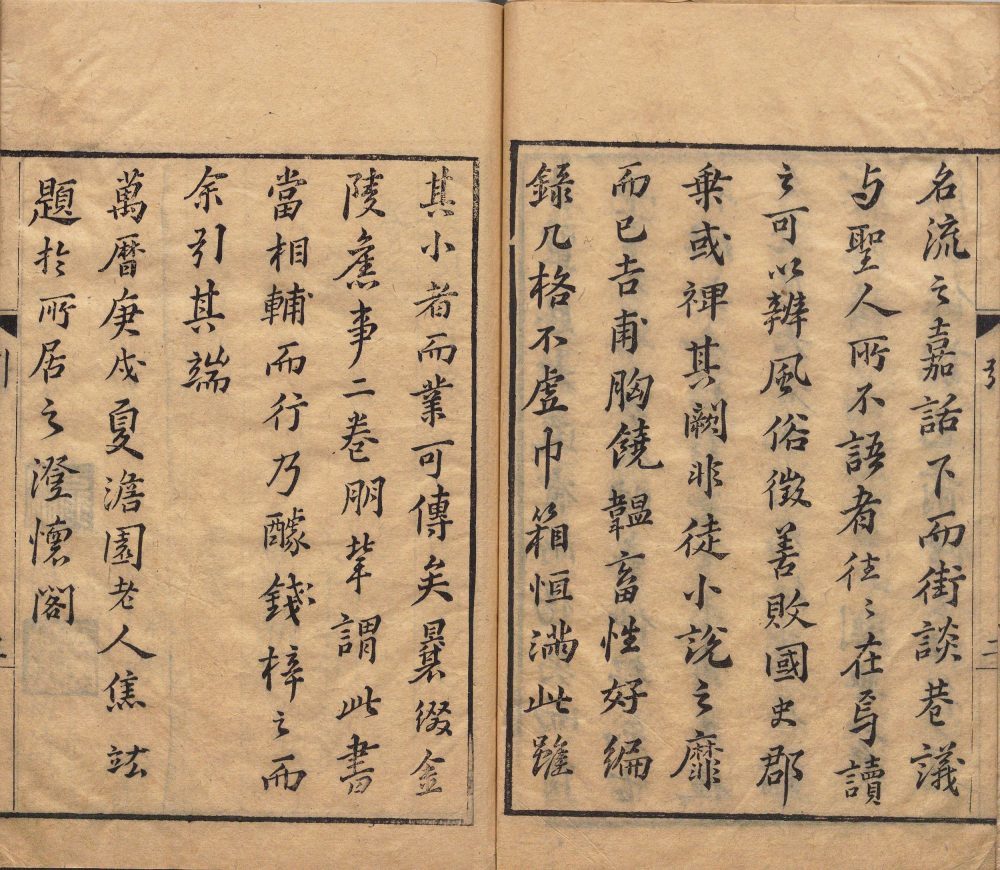 名流之嘉話下而街談巷議
与聖人所不語者往〻在焉讀
之可以辨風俗徴善敗國史郡
乗或禆其闕非徒小說之靡
而已吉甫胸饒韞畜性好編
録几格不虚巾箱恒滿此雖
引
二
其小者而業可傳矣曩綴金
陵舊事二卷朋輩謂此書
當相輔而行乃醵錢梓之而
余引其端
萬曆庚戌夏澹園老人焦竑
題於所居之澄懷閣